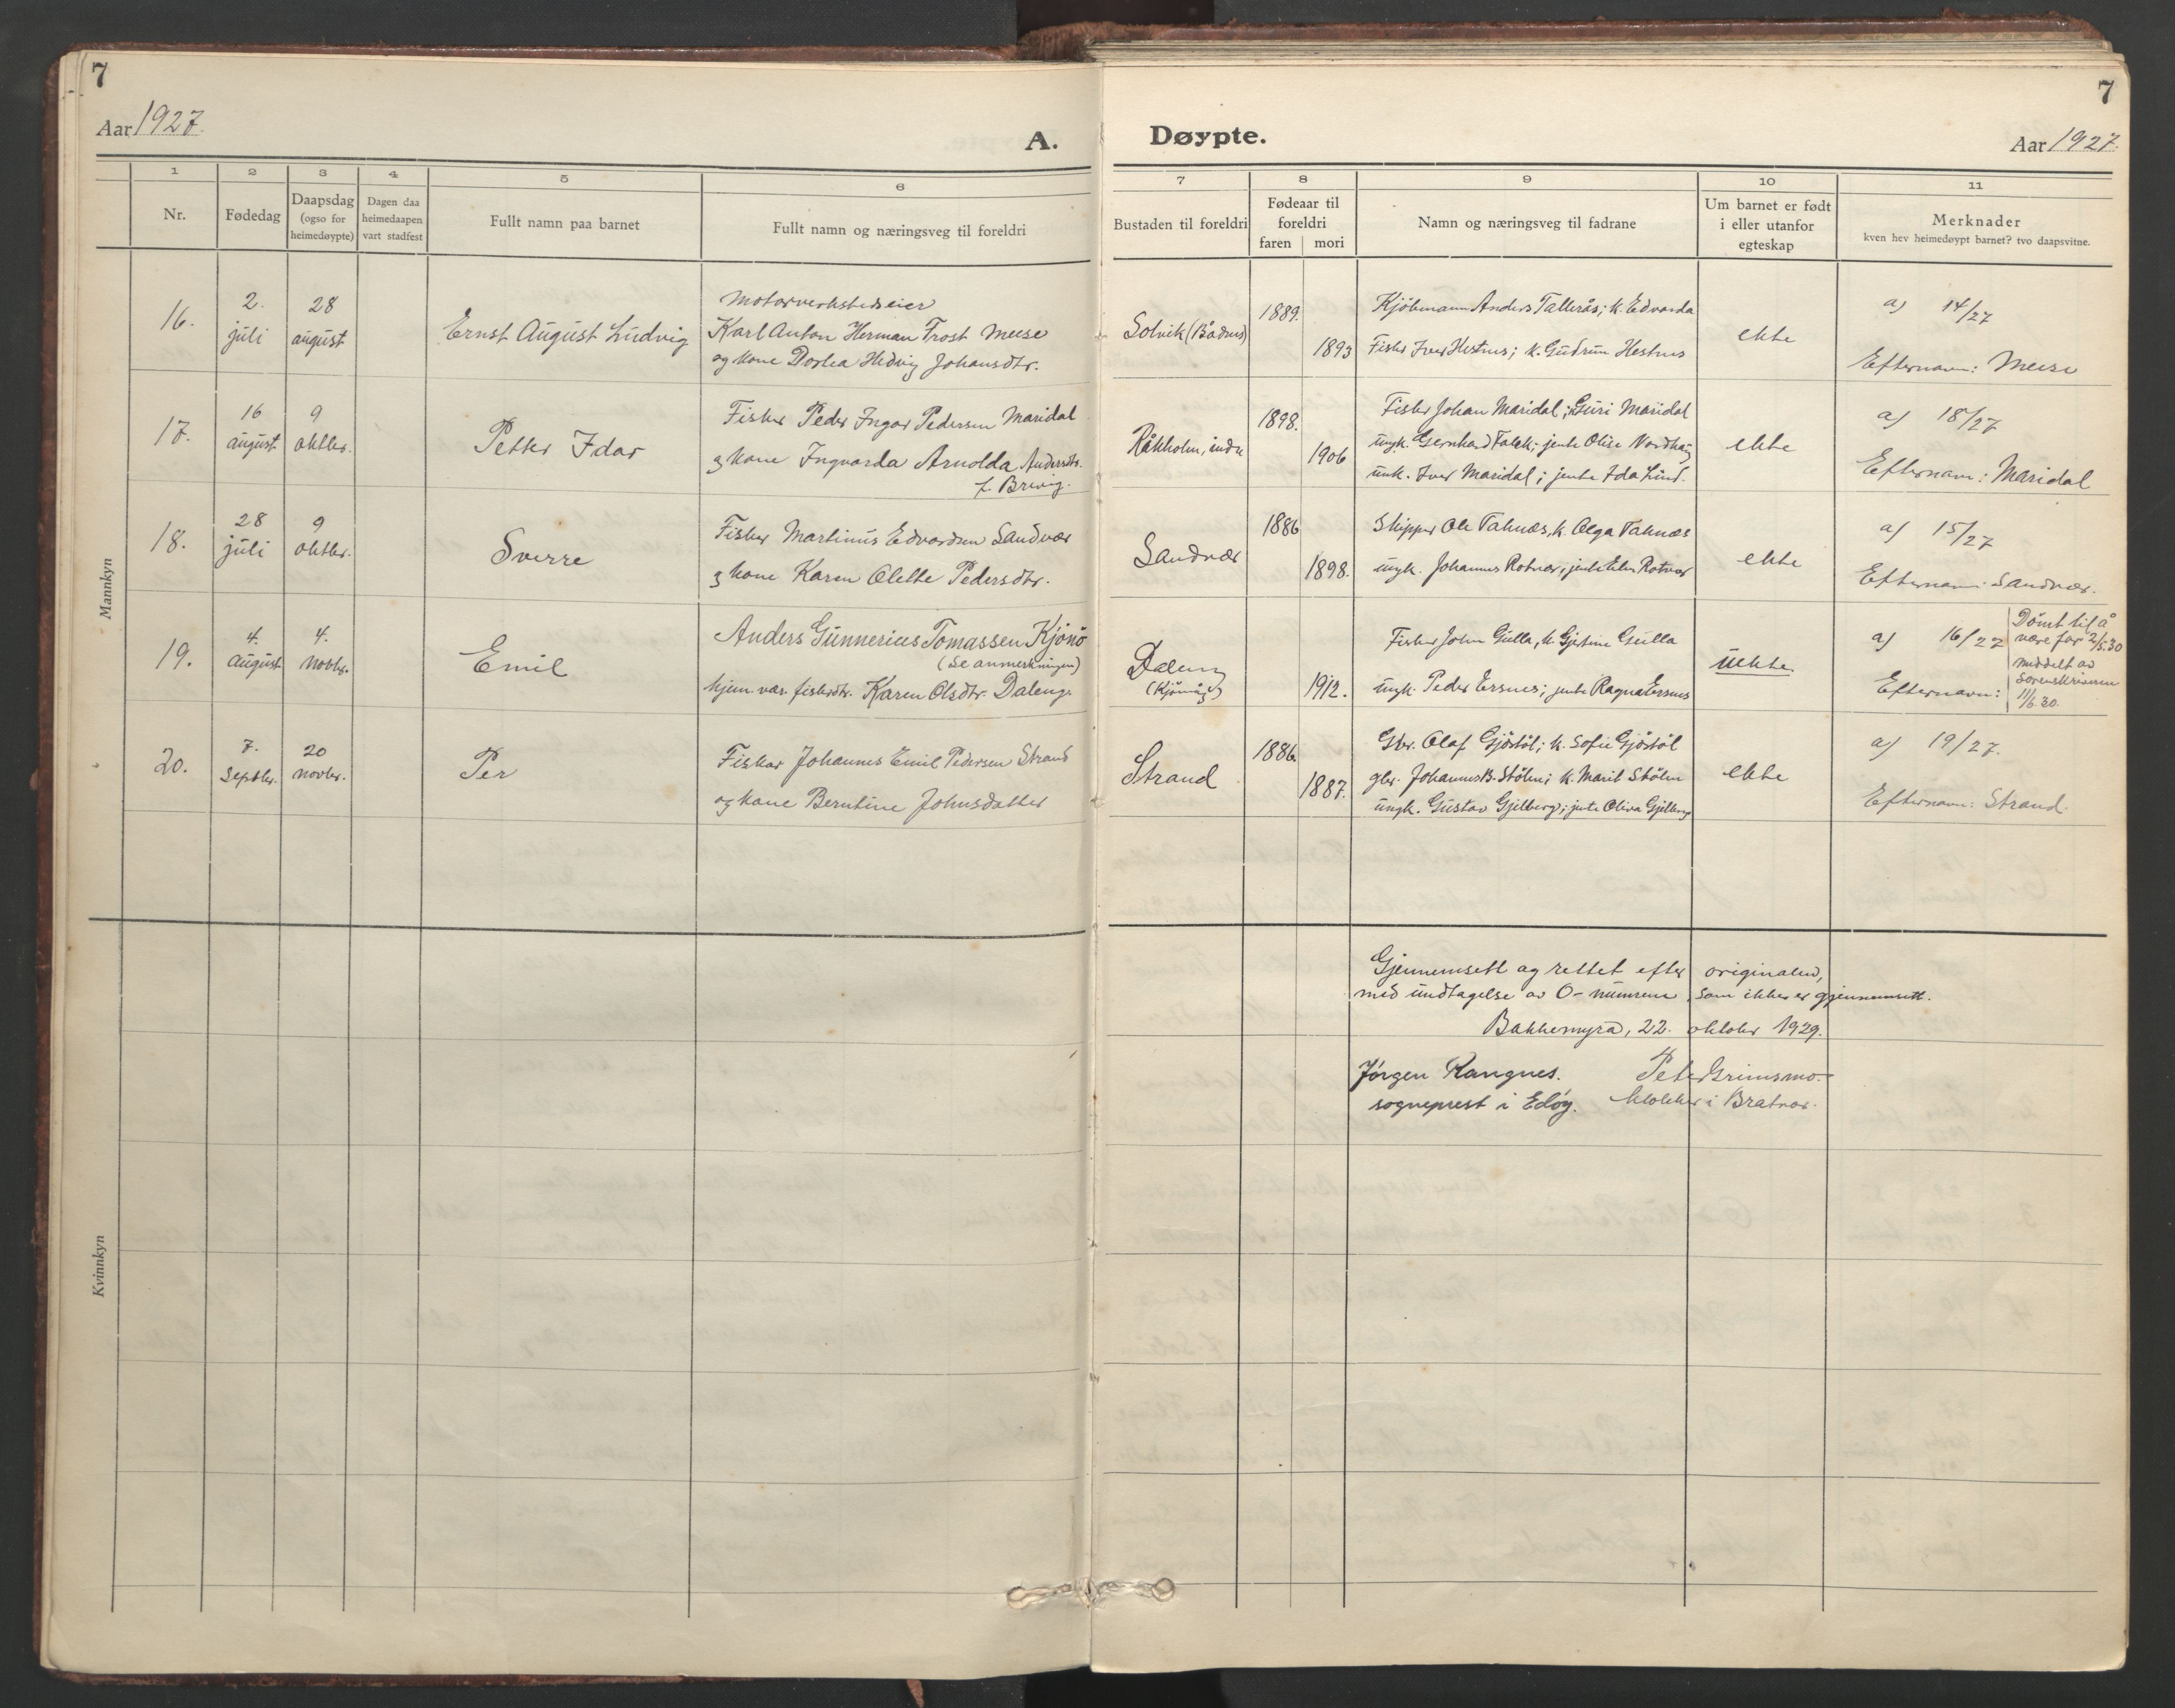 7
Aar 1927.
A.
1 2 3 4 5 6
Nr.
Fødedag
Daapsdag
(ogso for
heimedøypte)
Dagen daa
heimedaapen
vart stadfest
Fullt namn paa barnet
Fullt namn og næringsveg til foreldri
Mannkyn
16.
2.
juli
28
august
Ernst August Ludvig
Motorverkstedseier
Karl Anton Herman Frost Meese
og kone Dorlea Hedvig Johansdtr.
17.
16
august
9
oktbr.
Petter Idar
Fisker Peder Ingar Pedersen Maridal
og kone Ingvarda Arnolda Andersdtr.
f. Brevig.
18.
28
juli
9
oktbr.
Sverre
Fisker Martinus Edvardsen Sandvær
og kone Karen Olette Pedersdtr.
19.
4.
august
4.
novbr.
Emil
Anders Gunnerius Tomassen Kjönö
(Se anmerkningen)
hjem. vær. fiskerdtr. Karen Olsdtr. Daleng.
20.
7.
Septbr.
20
novbr.
Per
Fisker Johannes Emil Pedersen Strand
og kone Berntine Johnsdatter
Kvinnkyn
7
Døypte.
Aar 1927.
7 8 9 10 11
Bustaden til foreldri
Fødeaar til
foreldri
faren mori
Namn og næringsveg til fadrane
Um barnet er født
i eller utanfor
egteskap
Merknader
kven hev heimedøypt barnet? tvo daapsvitne.
Solvik (Bådnes)
1889.
1893
Kjöbmann Anders Tallerås; k. Edvarda
Fisker Iver Hestnes; k. Gudrun Hestnes
ekte
a) 14/27
Efternavn: Meese
Råkholm, indre
1898.
1906
Fisker Johan Maridal; Guri Maridal
ungk. Gernhard Falck; jente Olise Nordhaug
unk. Iver Maridal; jente Ida Lind.
ekte
a) 18/27
Efternavn: Maridal
Sandvær
1886
1898.
Skipper Ole Taknæs, k. Olga Taknæs
ungk. Johannes Rotvær; jente Elen Rotvær
ekte
a) 15/27
Efternavn: Sandvær.
Daleng
(Kjönnöy)
1912.
Fisker John Gulla, k. Gjertine Gulla
ungk. Peder Ersnes; jente Ragna Ersnes
uekte.
a) 16/27
Efternavn:
Dömt til å
være far 2/5.30
meddelt av
Sorenskriveren
11/6.30.
Strand
1886.
1887.
Gbr. Olaf Gjöstöl; k. Sofie Gjöstöl
gbr. Johannes B. Stölen; k. Marit Stölen
ungk. Gustav Gjelberg; jente Oliva Gjelberg
ekte
a) 19/27.
Efternavn: Strand.
Gjennemsett og rettet efter originalen,
med undtagelse av O-numrene, som ikke er gjennemsett.
Bakkemyra, 22. oktober 1929.
Jörgen Rangnes. Peter Grimsmo.
sogneprest i Edöy. klokker i Bratvær.